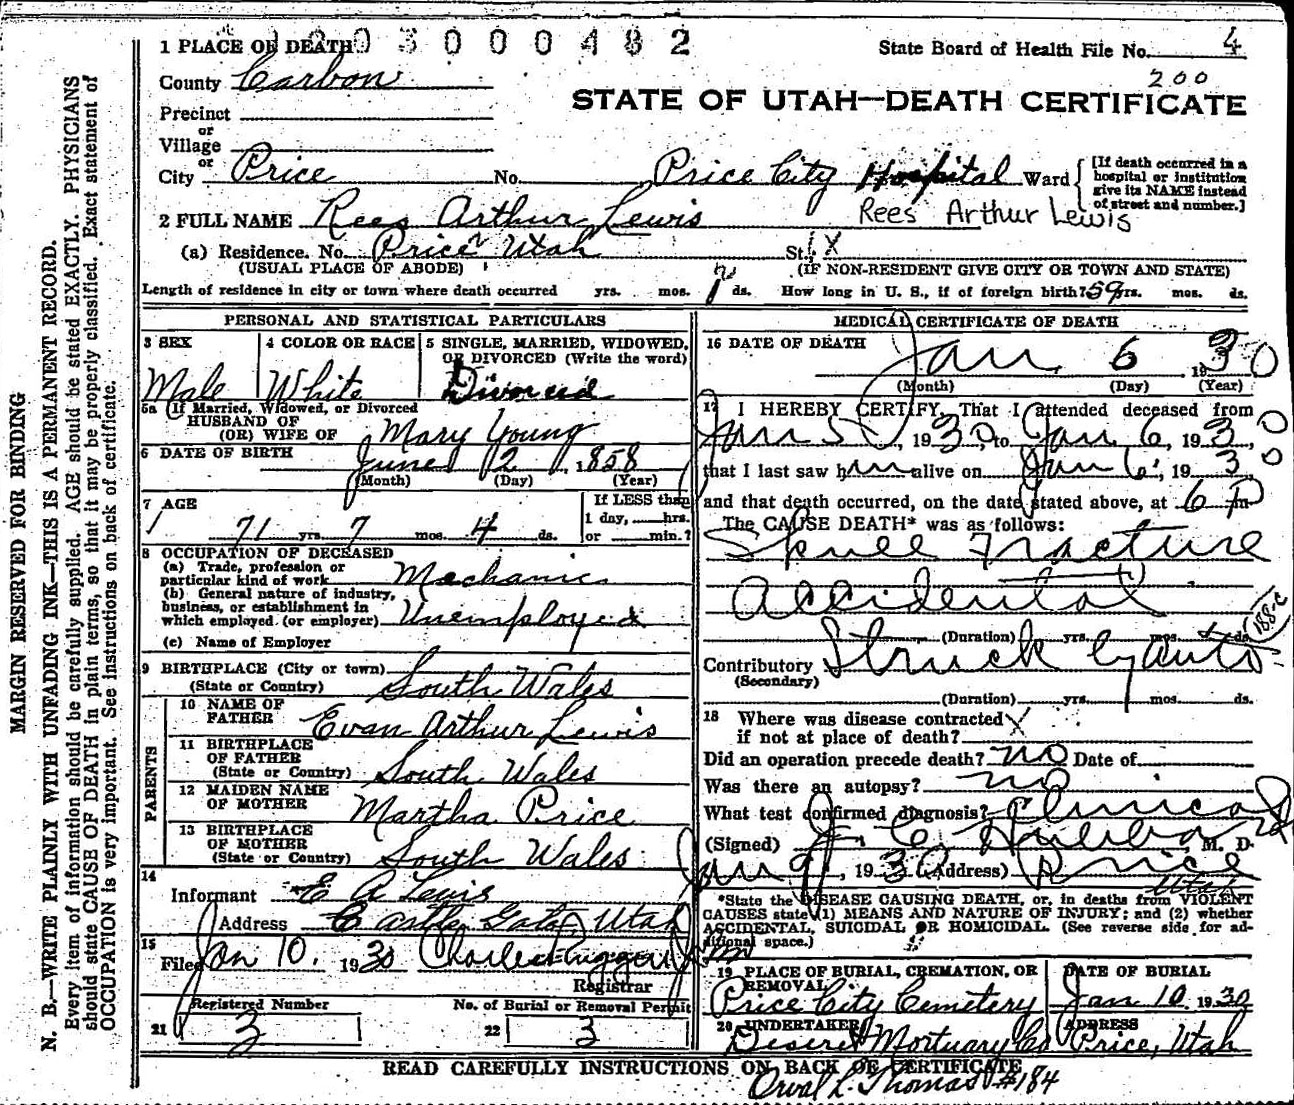 1 PLACE OF DEATH 003000482
State Board of Health File No. 4
200
County Carbon
STATE OF UTAH—DEATH CERTIFICATE
Precinct
or
Village
or
City Price No. Price City Hospital Ward
[If death occurred in a hospital or institution give its NAME instead of street and number.]
2 FULL NAME Rees Arthur Lewis
Rees Arthur Lewis
(a) Residence. No. Price Utah St. X
(USUAL PLACE OF ABODE) (IF NON-RESIDENT GIVE CITY OR TOWN AND STATE)
Length of residence in city or town where death occurred yrs. mos. ds. How long in U. S., if of foreign birth? 59 yrs. mos. ds.
PERSONAL AND STATISTICAL PARTICULARS
3 SEX 4 COLOR OR RACE 5 SINGLE, MARRIED, WIDOWED, OR DIVORCED (Write the word)
Male White Divorced
5a (If Married, Widowed, or Divorced
HUSBAND OF
(OR) WIFE OF Mary Young
6 DATE OF BIRTH June 2, 1858
(Month) (Day) (Year)
7 AGE If LESS than
71 yrs. 7 mos. 4 ds. 1 day, hrs.
or min.?
8 OCCUPATION OF DECEASED
(a) Trade, profession or
particular kind of work Mechanic
(b) General nature of industry,
business, or establishment in
which employed (or employer) Unemployed
(c) Name of Employer
9 BIRTHPLACE (City or town)
(State or Country) South Wales
PARENTS
10 NAME OF
FATHER Evan Arthur Lewis
11 BIRTHPLACE
OF FATHER
(State or Country) South Wales
12 MAIDEN NAME
OF MOTHER Martha Price
13 BIRTHPLACE
OF MOTHER
(State or Country) South Wales
14
Informant E A Lewis
Address Castle Gate, Utah
15
Filed Jan 10. 1930
Registrar
Registered Number No. of Burial or Removal Permit
21 3 22 3
MEDICAL CERTIFICATE OF DEATH
16 DATE OF DEATH Jan 6 1930
(Month) (Day) (Year)
17 I HEREBY CERTIFY, That I attended deceased from
Jan 5, 1930, to Jan 6, 1930,
that I last saw him alive on Jan 6, 1930
and that death occurred, on the date stated above, at 6 P m
The CAUSE DEATH* was as follows:
Skull Fracture
Accidental
188-c
(Duration) yrs. mos. ds.
Contributory Struck by auto
(Secondary)
(Duration) yrs. mos. ds.
18 Where was disease contracted X
if not at place of death?
Did an operation precede death? no Date of
Was there an autopsy? no
What test confirmed diagnosis? Clinical
(Signed) J. C. Hubbard, M. D.
Jan 7, 1930 (Address) Price
Utah
*State the DISEASE CAUSING DEATH, or, in deaths from VIOLENT
CAUSES state (1) MEANS AND NATURE OF INJURY; and (2) whether
ACCIDENTAL, SUICIDAL OR HOMICIDAL. (See reverse side for ad-
ditional space.)
19 PLACE OF BURIAL, CREMATION, OR REMOVAL DATE OF BURIAL
Price City Cemetery Jan 10 1930
20 UNDERTAKER ADDRESS
Deseret Mortuary Co Price, Utah
READ CAREFULLY INSTRUCTIONS ON BACK OF CERTIFICATE
Orval L. Thomas #184
MARGIN RESERVED FOR BINDING
N. B.—WRITE PLAINLY WITH UNFADING INK—THIS IS A PERMANENT RECORD.
Every item of information should be carefully supplied. AGE should be stated EXACTLY. PHYSICIANS
should state CAUSE OF DEATH in plain terms, so that it may be properly classified. Exact statement of
OCCUPATION is very important. See instructions on back of certificate.